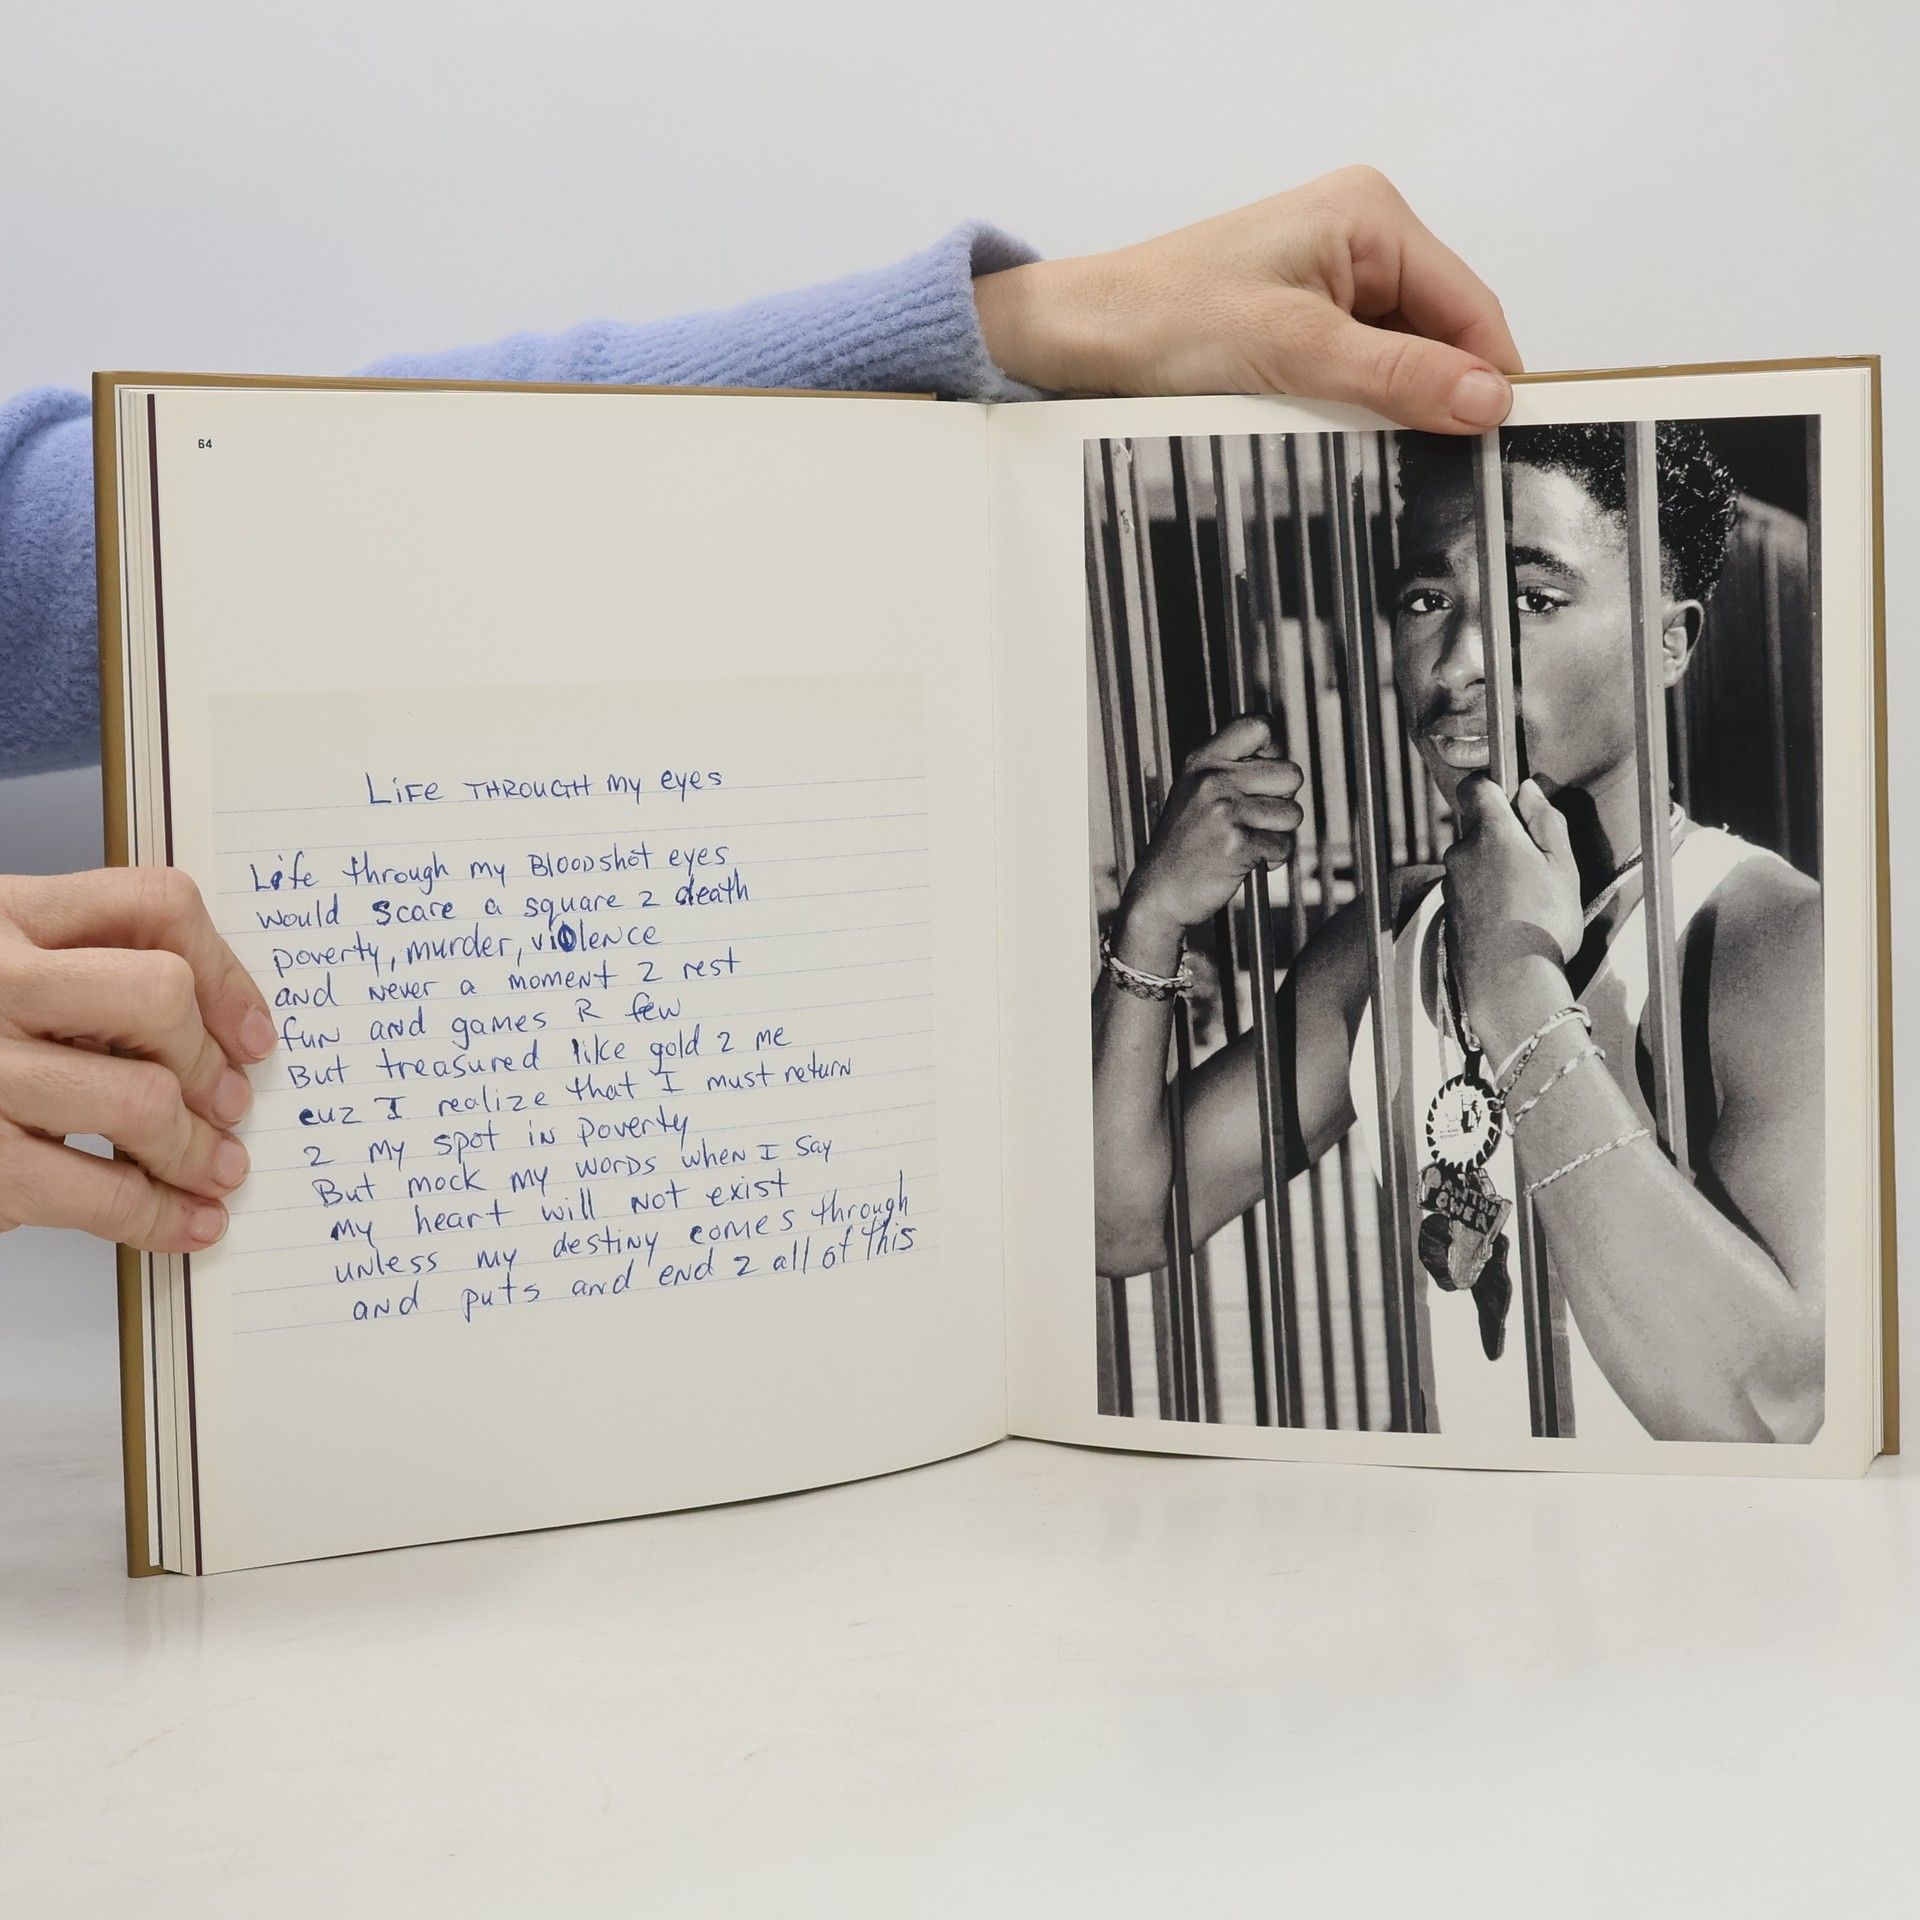 64
LiFe THROUGH my eyes
Life through my Bloodshot eyes
would scare a square 2 death
poverty, murder, violence
and never a moment 2 rest
fun and games R few
But treasured like gold 2 me
cuz I realize that I must return
2 my spot in poverty
But mock my words when I say
my heart will not exist
unless my destiny comes through
and puts and end 2 all of this
POWER